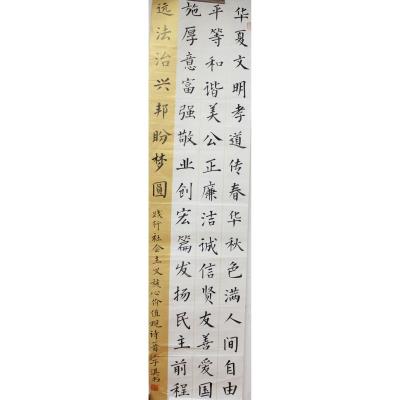 华夏文明孝道传春华秋色满人间自由
平等和谐美公正廉洁诚信贤友善爱国
施厚意富强敬业创宏篇发扬民主前程
远法治兴邦盼梦圆
践行社会主义核心价值观诗首